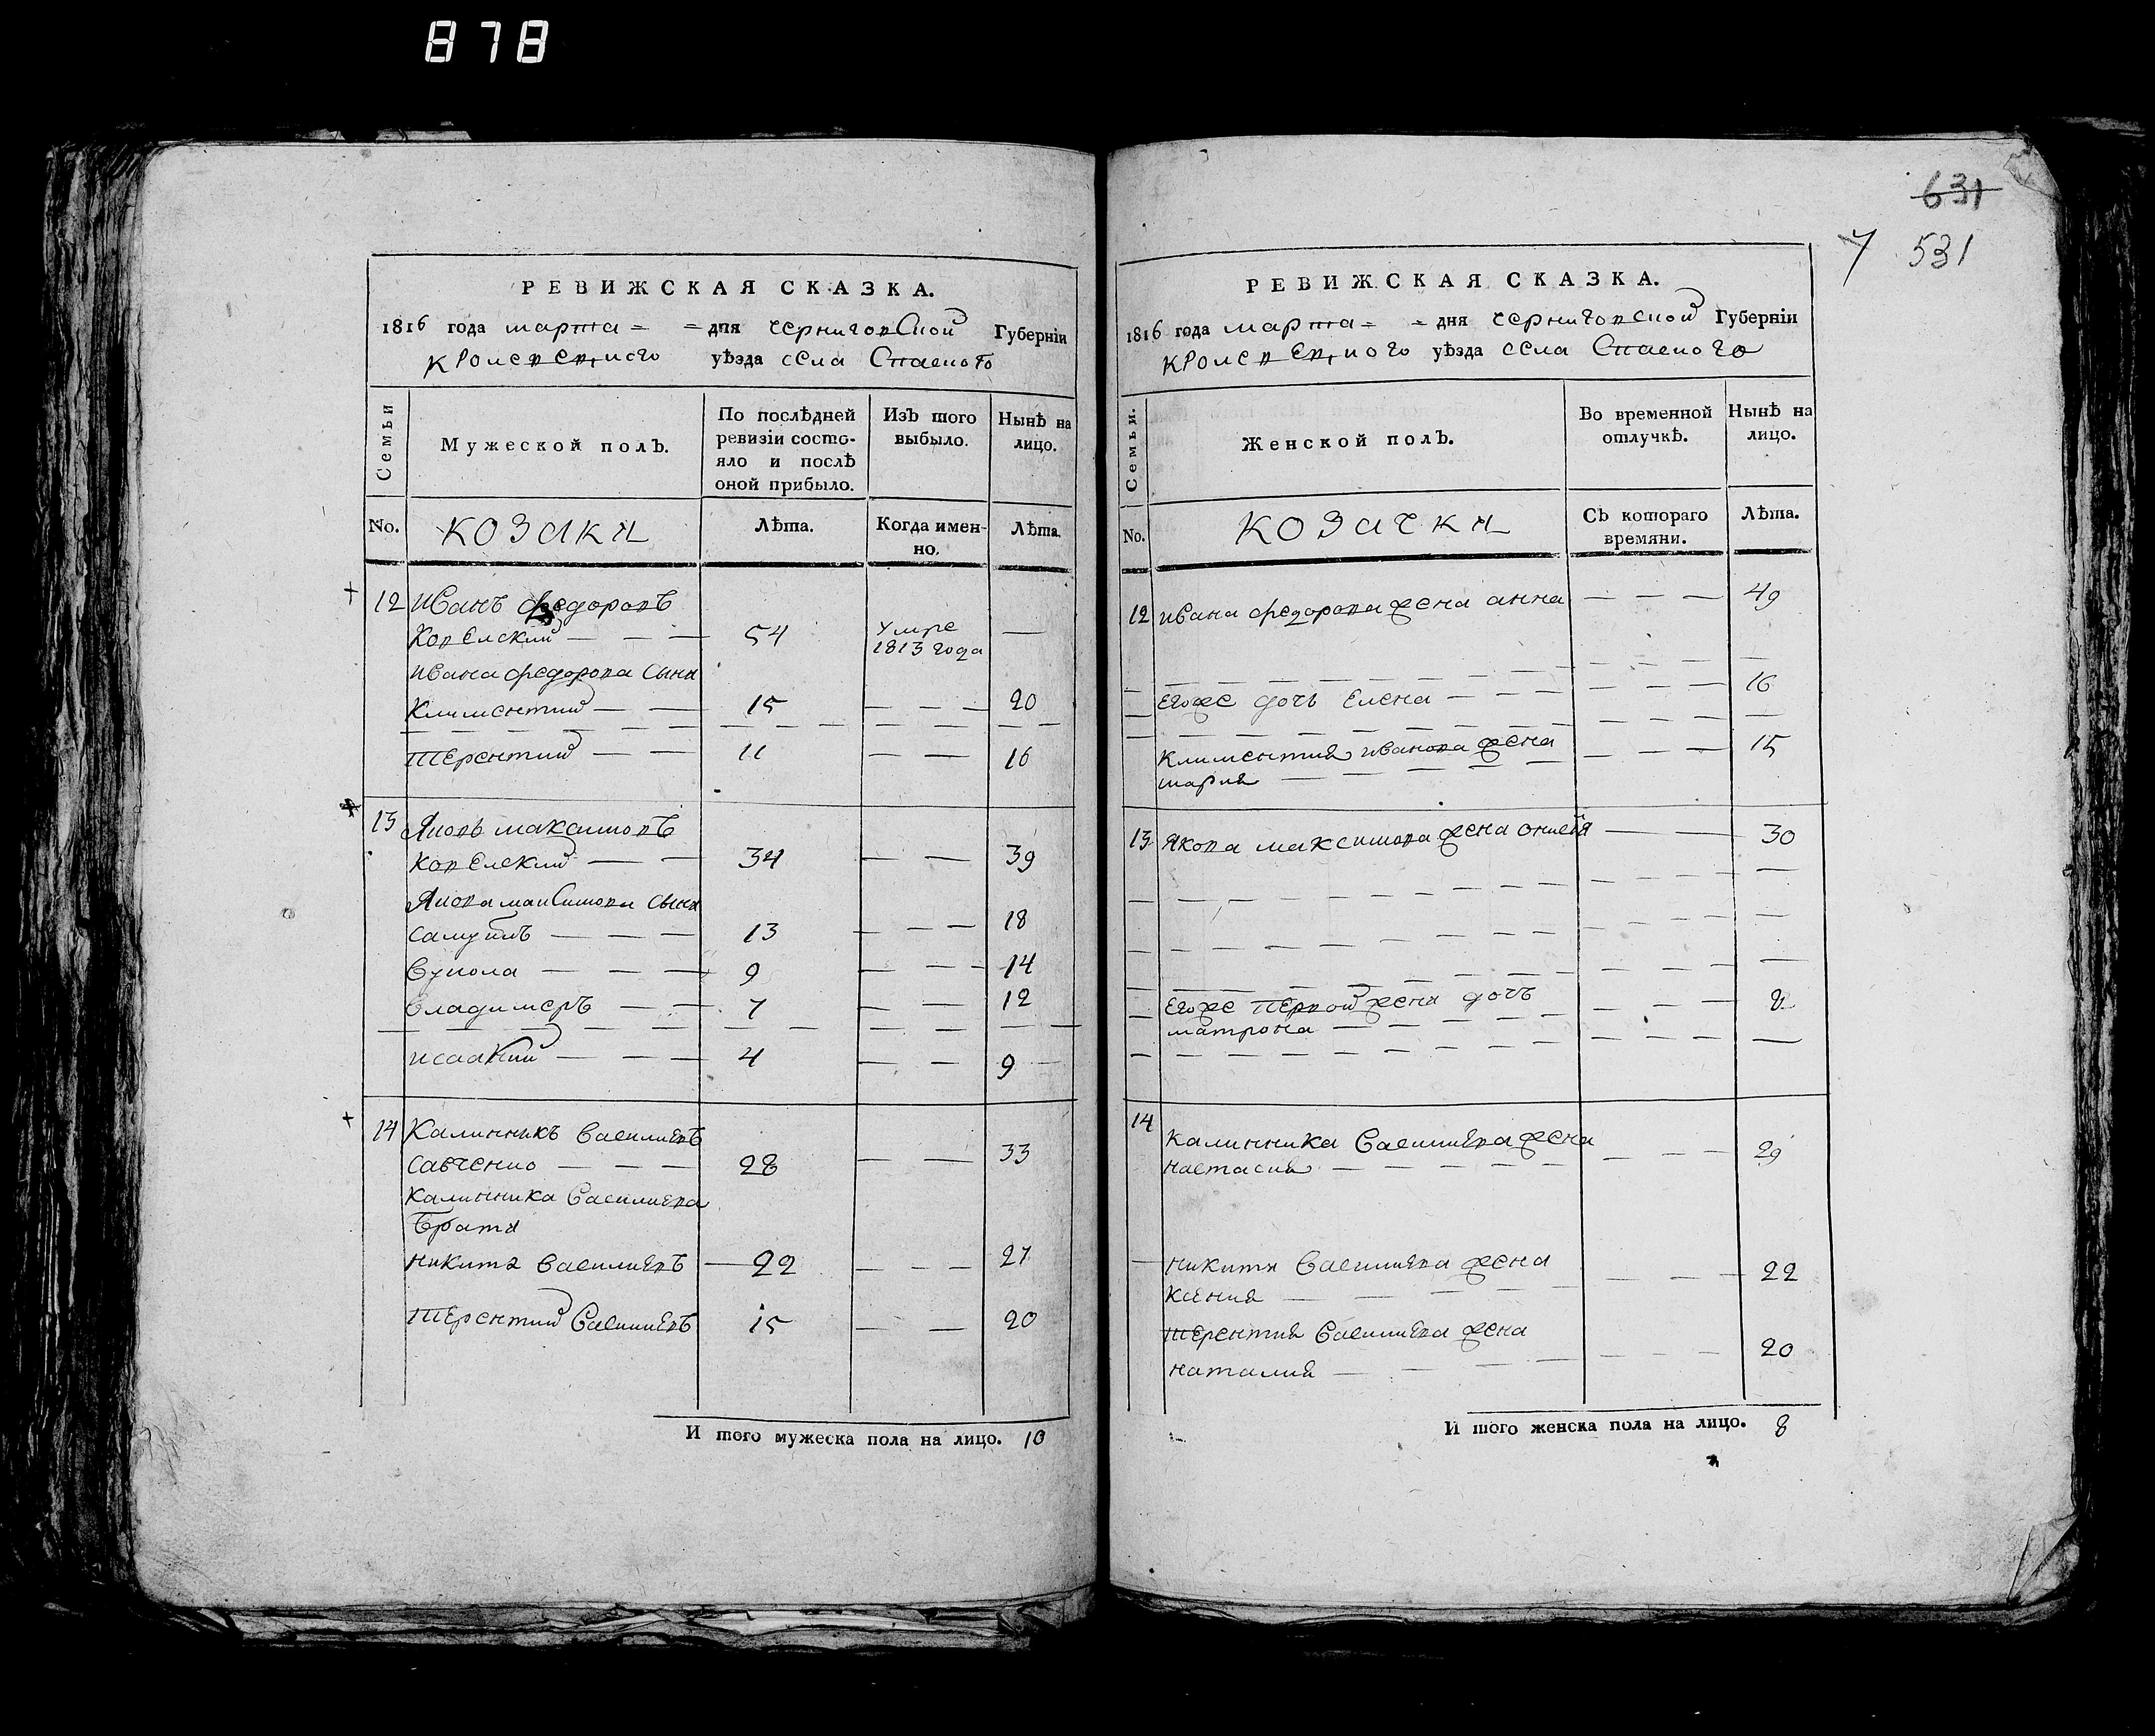 878
РЕВИЖСКАЯ СКАЗКА.
1816 года марта = = дня черниговской Губерніи
кролевецкого уѣзда села Спаского
Семьи
Мужеской полъ.
По послѣдней
ревизіи состо-
яло и послѣ
оной прибыло.
Изъ того
выбыло.
Нынѣ на
лицо.
No.
козаки
Лѣта.
Когда имен-
но.
Лѣта.
12 Иванъ федоровъ
Ковелский — — — 54 Умре —
1813 года
Ивана федорова сыны
Климентий — — 15 — — — 20
Терентий — — 11 — — 16
13 Яковъ максимовъ
Ковелский — — 34 — — 39
Якова максимова сыны
самуилъ — — — 13 — — — 18
вукола — — — 9 — — — 14
владимеръ — — 7 — — 12
исаакий — — — 4 — — 9
14 Калинникъ василиевъ
савченко — — — 28 — — 33
Калинника василиева
братя
никита василиевъ — 22 — — — 27
терентий василиевъ 15 — — 20
И того мужеска пола на лицо. 10
631
531
РЕВИЖСКАЯ СКАЗКА.
1816 года марта = = дня черниговской Губерніи
кролевецкого уѣзда села Спаского
Семьи.
Женской полъ.
Во временной
отлучкѣ.
Нынѣ на
лицо.
No.
козачки
Съ котораго
времяни.
Лѣта.
12 ивана федорова жена анна — — — 49
Егоже дочь Елена — — — — — 16
Климентия иванова жена — — — 15
мария — — — — —
13 Якова максимова жена — — 30
Егоже первой жены дочь — — — 8
матрона — — — — —
14 Калинника василиева жена
настасия — — — — — — — — 29
никиты василиева жена
ксения — — — — — — — 22
терентия василиева жена
наталия — — — — — — 20
И того женска пола на лицо. 8